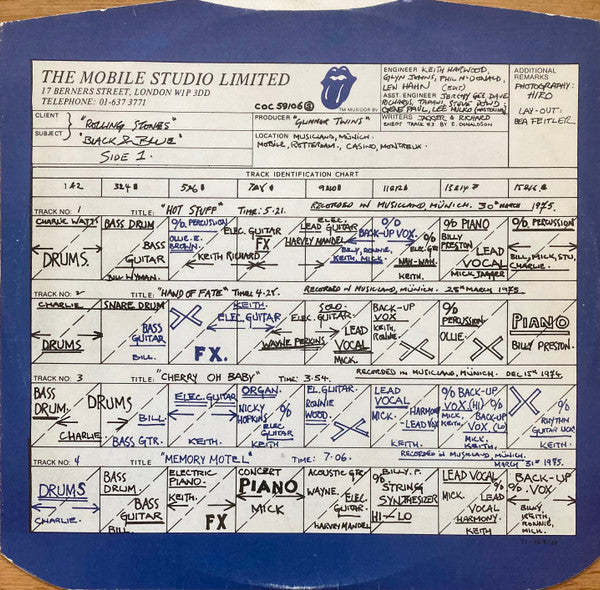 THE MOBILE STUDIO LIMITED
17 BERNERS STREET, LONDON W1P 3DD
TELEPHONE: 01-637 3771
COC 59106
TM MUSIDOR BV
ENGINEER KEITH HARWOOD,
GLYN JOHNS, PHIL McDONALD,
LEW HAHN (EDIT)
ASST. ENGINEER JEREMY GEE, DAVE
RICHARDS, TAPANI, STEVE DOWD
GENE PAUL, LEE HULKO (MASTERING)
WRITERS JAGGER & RICHARD
EXCEPT TRACK #3 BY E. DONALDSON
ADDITIONAL
REMARKS
PHOTOGRAPHY:
HIRO
LAY-OUT:
BEA FEITLER
CLIENT "ROLLING STONES"
SUBJECT "BLACK & BLUE"
SIDE 1.
PRODUCER "GLIMMER TWINS"
LOCATION MUSICLAND, MÜNICH.
MOBILE, ROTTERDAM., CASINO, MONTREUX.
TRACK IDENTIFICATION CHART
1&2 3&4 5&6 7&8 9&10 11&12 13&14 15&16
TRACK NO: 1 TITLE: "HOT STUFF" TIME: 5.21. RECORDED IN MUSICLAND, MÜNICH. 30TH MARCH 1975.
CHARLIE WATTS
DRUMS.
BASS DRUM
BASS
GUITAR
BILL WYMAN.
% PERCUSSION
OLLIE. E.
BROWN.
KEITH RICHARD
ELEC. GUITAR
FX
ELEC.
LEAD GUITAR
HARVEY MANDEL
O/D
BACK-UP VOX.
BILLY, RONNIE,
KEITH, MICK
% ELEC. GTR
WAH-WAH.
KEITH.
% PIANO
BILLY
PRESTON
LEAD
VOCAL
MICK JAGGER
% PERCUSSION
BILL, MICK, STU,
CHARLIE.
TRACK NO: 2 TITLE: "HAND OF FATE" TIME: 4.28. RECORDED IN MUSICLAND, MÜNICH. 25TH MARCH 1975.
CHARLIE
DRUMS
SNARE DRUM
BASS
GUITAR
BILL.
X
FX.
KEITH.
ELEC. GUITAR
WAYNE PERKINS
SOLO.
ELEC. GUITAR.
LEAD
VOCAL
MICK.
BACK-UP
VOX
KEITH,
RONNIE.
X
%
PERCUSSION
OLLIE.
PIANO
BILLY PRESTON.
TRACK NO. 3 TITLE: "CHERRY OH BABY" TIME: 3.54. RECORDED IN MUSICLAND, MÜNICH. DEC 15TH 1974.
BASS
DRUM.
CHARLIE
DRUMS
BILL.
BASS GTR.
ELEC. GUITAR
KEITH.
ORGAN.
NICKY
HOPKINS
%
ELEC
GUITAR
KEITH
EL. GUITAR.
RONNIE
WOOD.
X
LEAD
VOCAL
MICK.
HARMONY
LEAD VOX
KEITH.
% BACK-UP
VOX (HI) %
MICK, BACK-UP
KEITH. VOX (LO)
MICK,
KEITH.
X
%
RHYTHM
GUITAR
KEITH.
TRACK NO. 4 TITLE: "MEMORY MOTEL" TIME: 7.06. RECORDED IN MUSICLAND, MÜNICH.
MARCH 31ST 1975.
DRUMS
CHARLIE.
BASS
DRUM
BASS
GUITAR
BILL.
ELECTRIC
PIANO.
KEITH.
FX
CONCERT
PIANO
MICK
ACOUSTIC GTR
WAYNE,
ELEC.
GUITAR.
HARVEY MANDEL
BILLY. P.
%
STRING
SYNTHESIZER
HI-LO
LEAD VOCAL
MICK.
%
LEAD
VOCAL
HARMONY.
KEITH
BACK-UP
% VOX
BILLY,
KEITH,
RONNIE,
MICK.